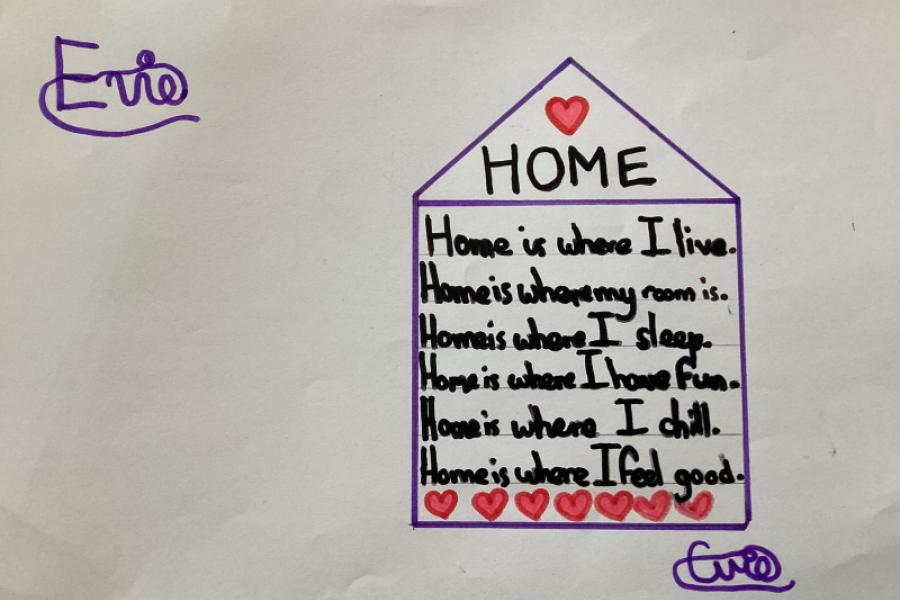 Evie
HOME
Home is where I live.
Home is where my room is.
Home is where I sleep.
Home is where I have fun.
Home is where I chill.
Home is where I feel good.
Evie